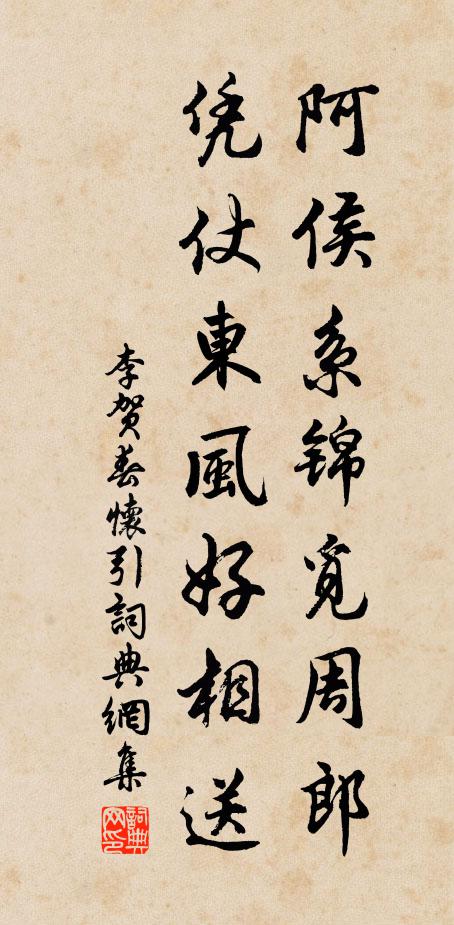 阿侯系錦覓周郎
凭仗東風好相送
李賀春懷引詞典網集
詞典网印